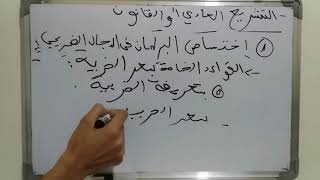 - التشريع العادي أو القانون
① إختصاص البرلمان في المجال الضريبي
> القواعد الخاصة بسعر الضريبة :
② بتعريف الضريبة .
- بسعر الضريب